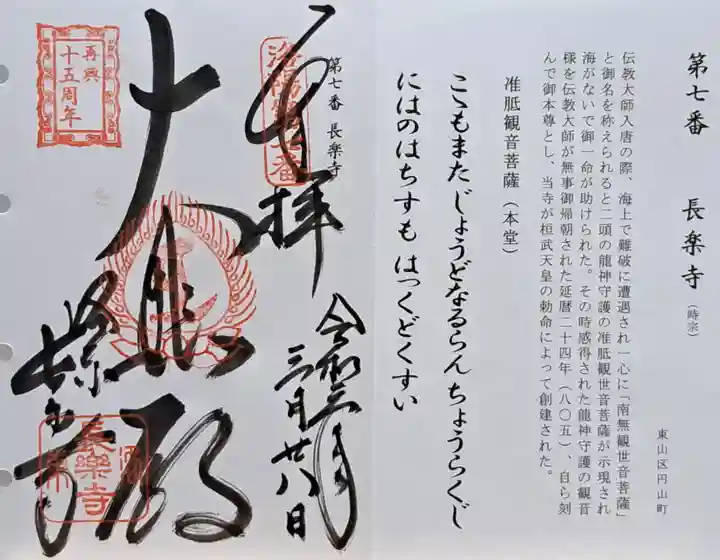 第七番 長楽寺（時宗）
東山区円山町
伝教大師入唐の際、海上で難破に遭遇され一心に「南無観世音菩薩」
と御名を称えられると二頭の龍神守護の准胝観世音菩薩が示現され
海がないで御一命が助けられた。その時感得された龍神守護の観音
様を伝教大師が無事御帰朝された延暦二十四年（八〇五）、自ら刻
んで御本尊とし、当寺が桓武天皇の勅命によって創建された。
准胝観音菩薩（本堂）
こゝもまた じょうどなるらん ちょうらくじ
にはのはちすも はっくどくすい
第七番 長楽寺
令和三年
三月廿八日
奉拝
大悲殿
再興
十五周年
長樂寺